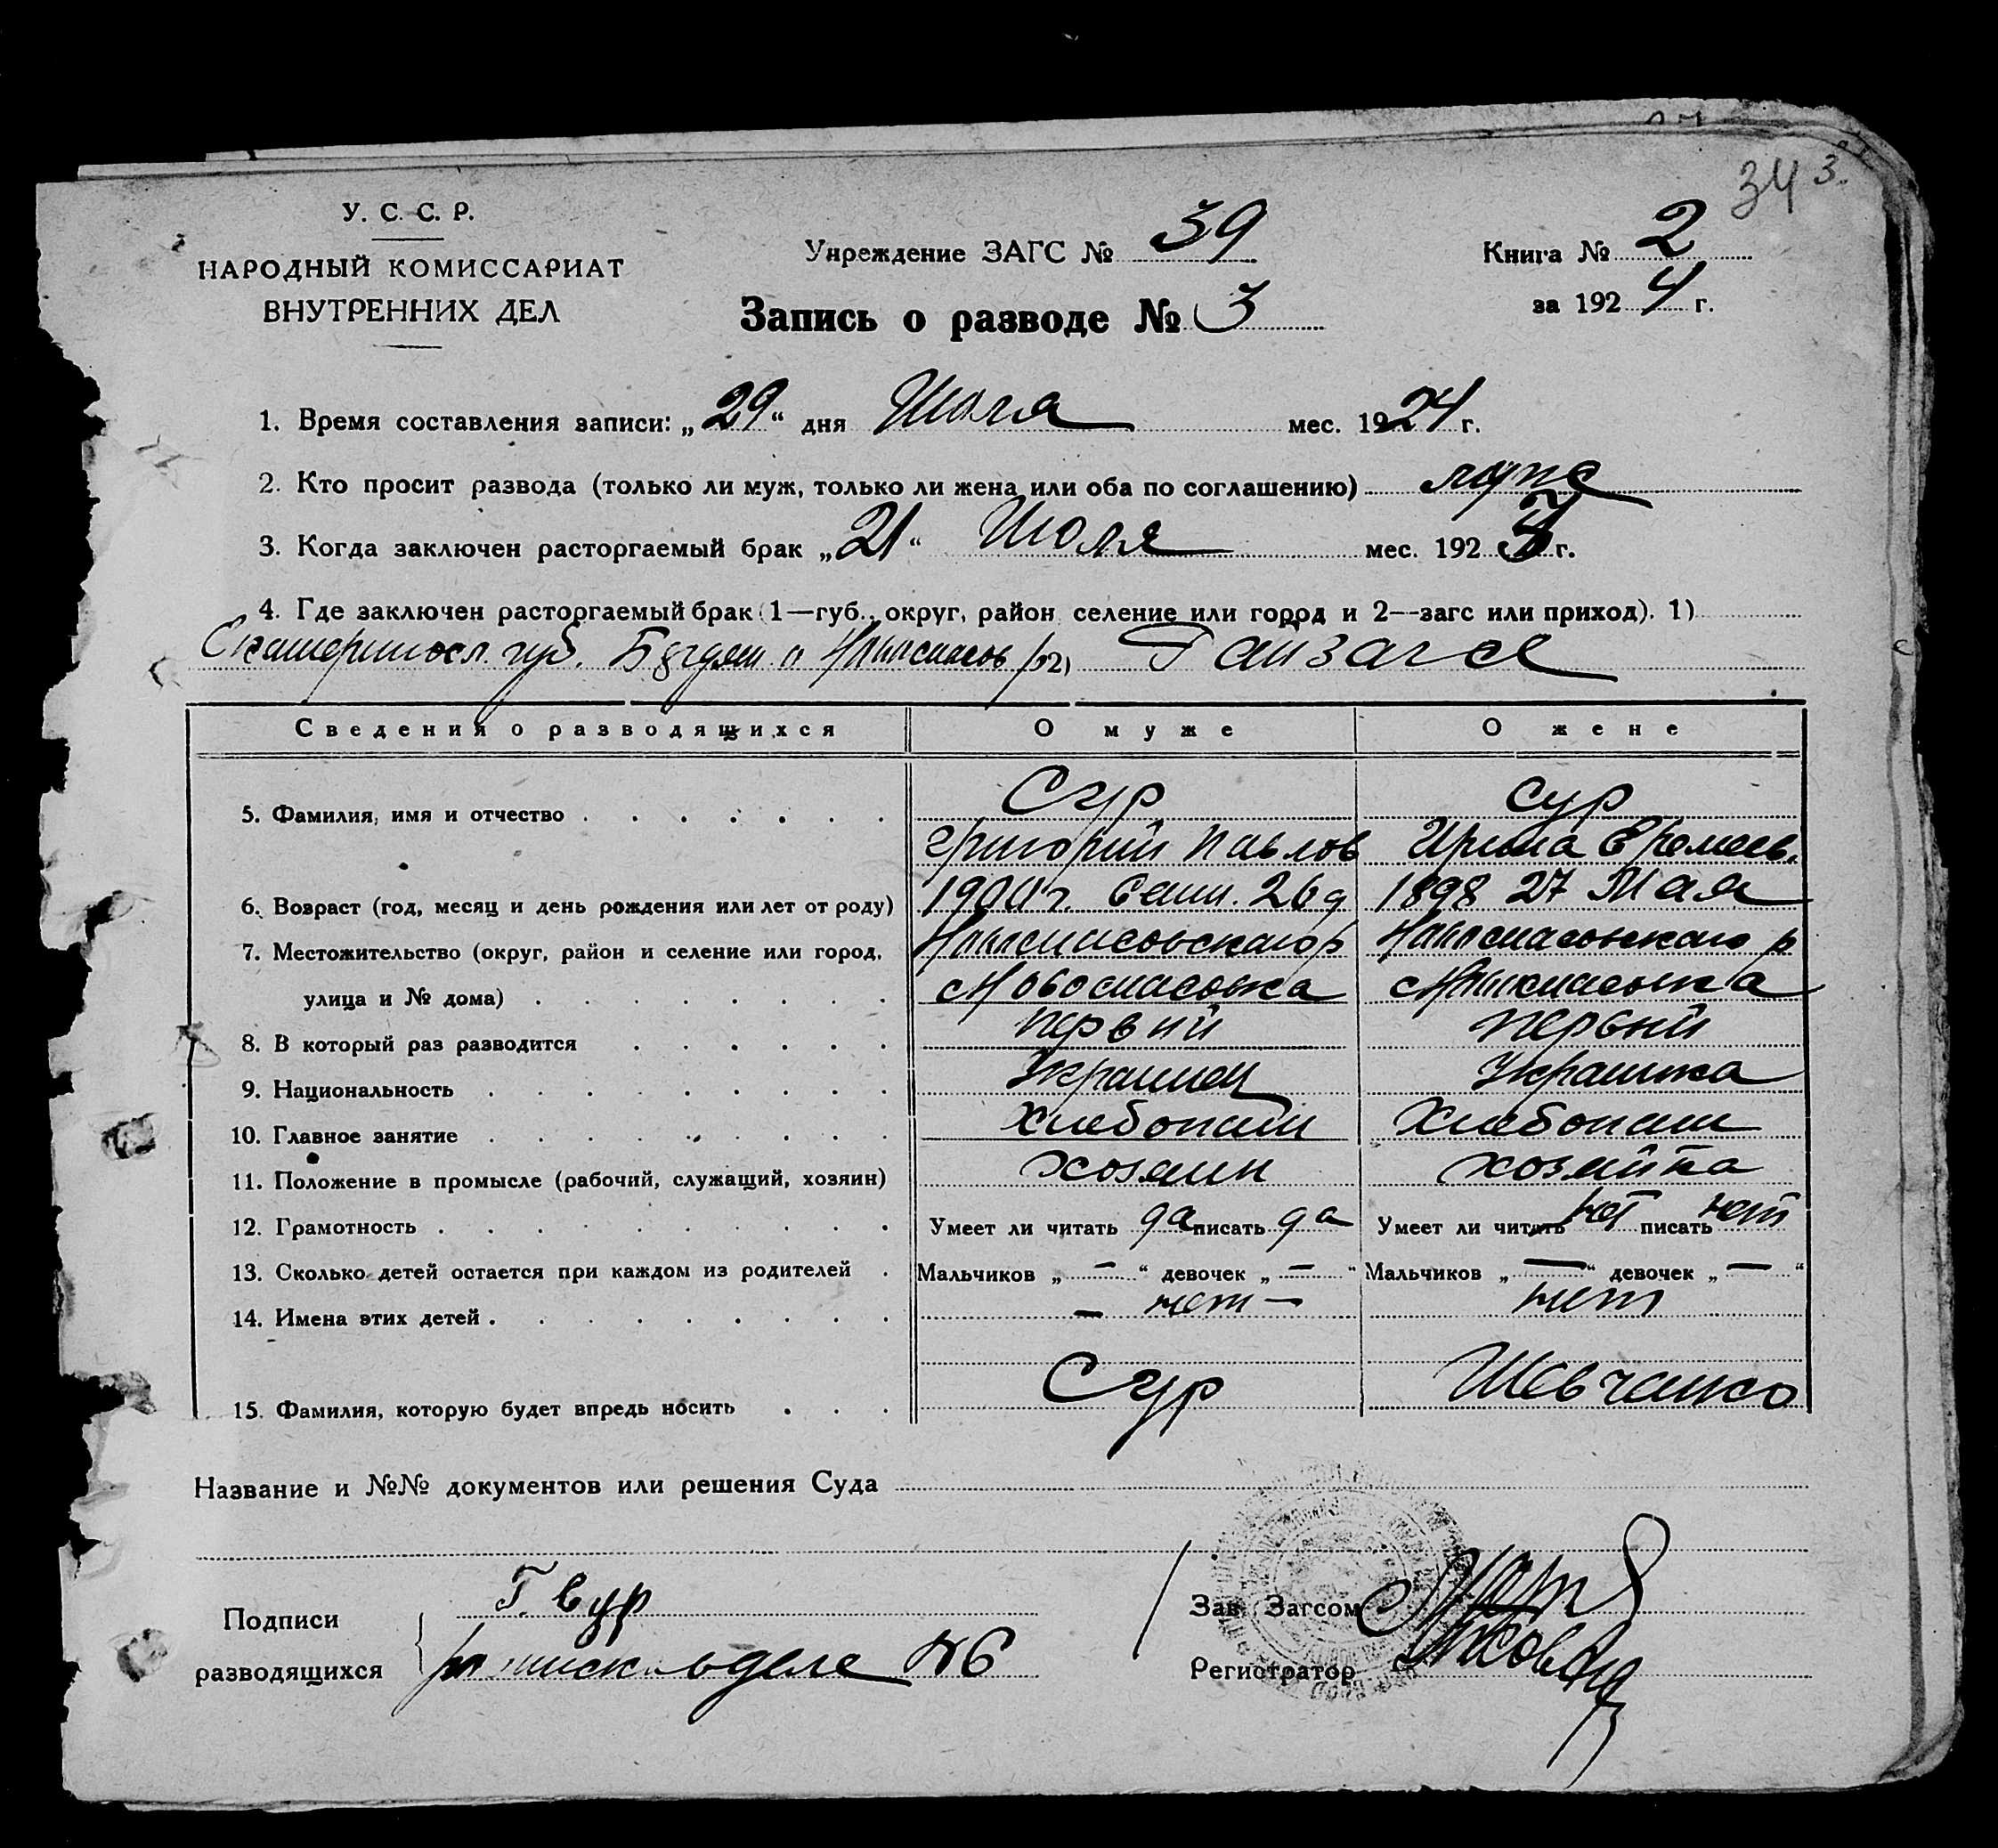 34 3.
У. С. С. Р.
НАРОДНЫЙ КОМИССАРИАТ
ВНУТРЕННИХ ДЕЛ
Учреждение ЗАГС № 39
Книга № 2
за 1924 г.
Запись о разводе № 3
1. Время составления записи: „29“ дня Июля мес. 1924 г.
2. Кто просит развода (только ли муж, только ли жена или оба по соглашению) муж
3. Когда заключен расторгаемый брак „21“ Июля мес. 192 г.
4. Где заключен расторгаемый брак (1—губ., округ, район селение или город и 2—загс или приход). 1)
Екатериносл. губ. 2)
Сведения о разводящихся О муже О жене
5. Фамилия, имя и отчество Сур Сур
Григорий Павлов Ирина Еремеев.
6. Возраст (год, месяц и день рождения или лет от роду) 1900 г. Сент. 26 д 1898 27 Мая
7. Местожительство (округ, район и селение или город, Новоспасовского р Новоспасовского р
улица и № дома) Новоспасовка Новоспасовка
8. В который раз разводится первий первий
9. Национальность Украинец Украинка
10. Главное занятие Хлебопаш Хлебопаш
11. Положение в промысле (рабочий, служащий, хозяин) хозяин хозяйка
12. Грамотность Умеет ли читать да писать да Умеет ли читать нет писать нет
13. Сколько детей остается при каждом из родителей Мальчиков „ — “ девочек „ — “ Мальчиков „ — “ девочек „ — “
14. Имена этих детей — нет — нет
15. Фамилия, которую будет впредь носить Сур Шевченко
Название и №№ документов или решения Суда
Подписи
разводящихся
Г. Сур
в деле №6
Зав. Загсом
Регистратор